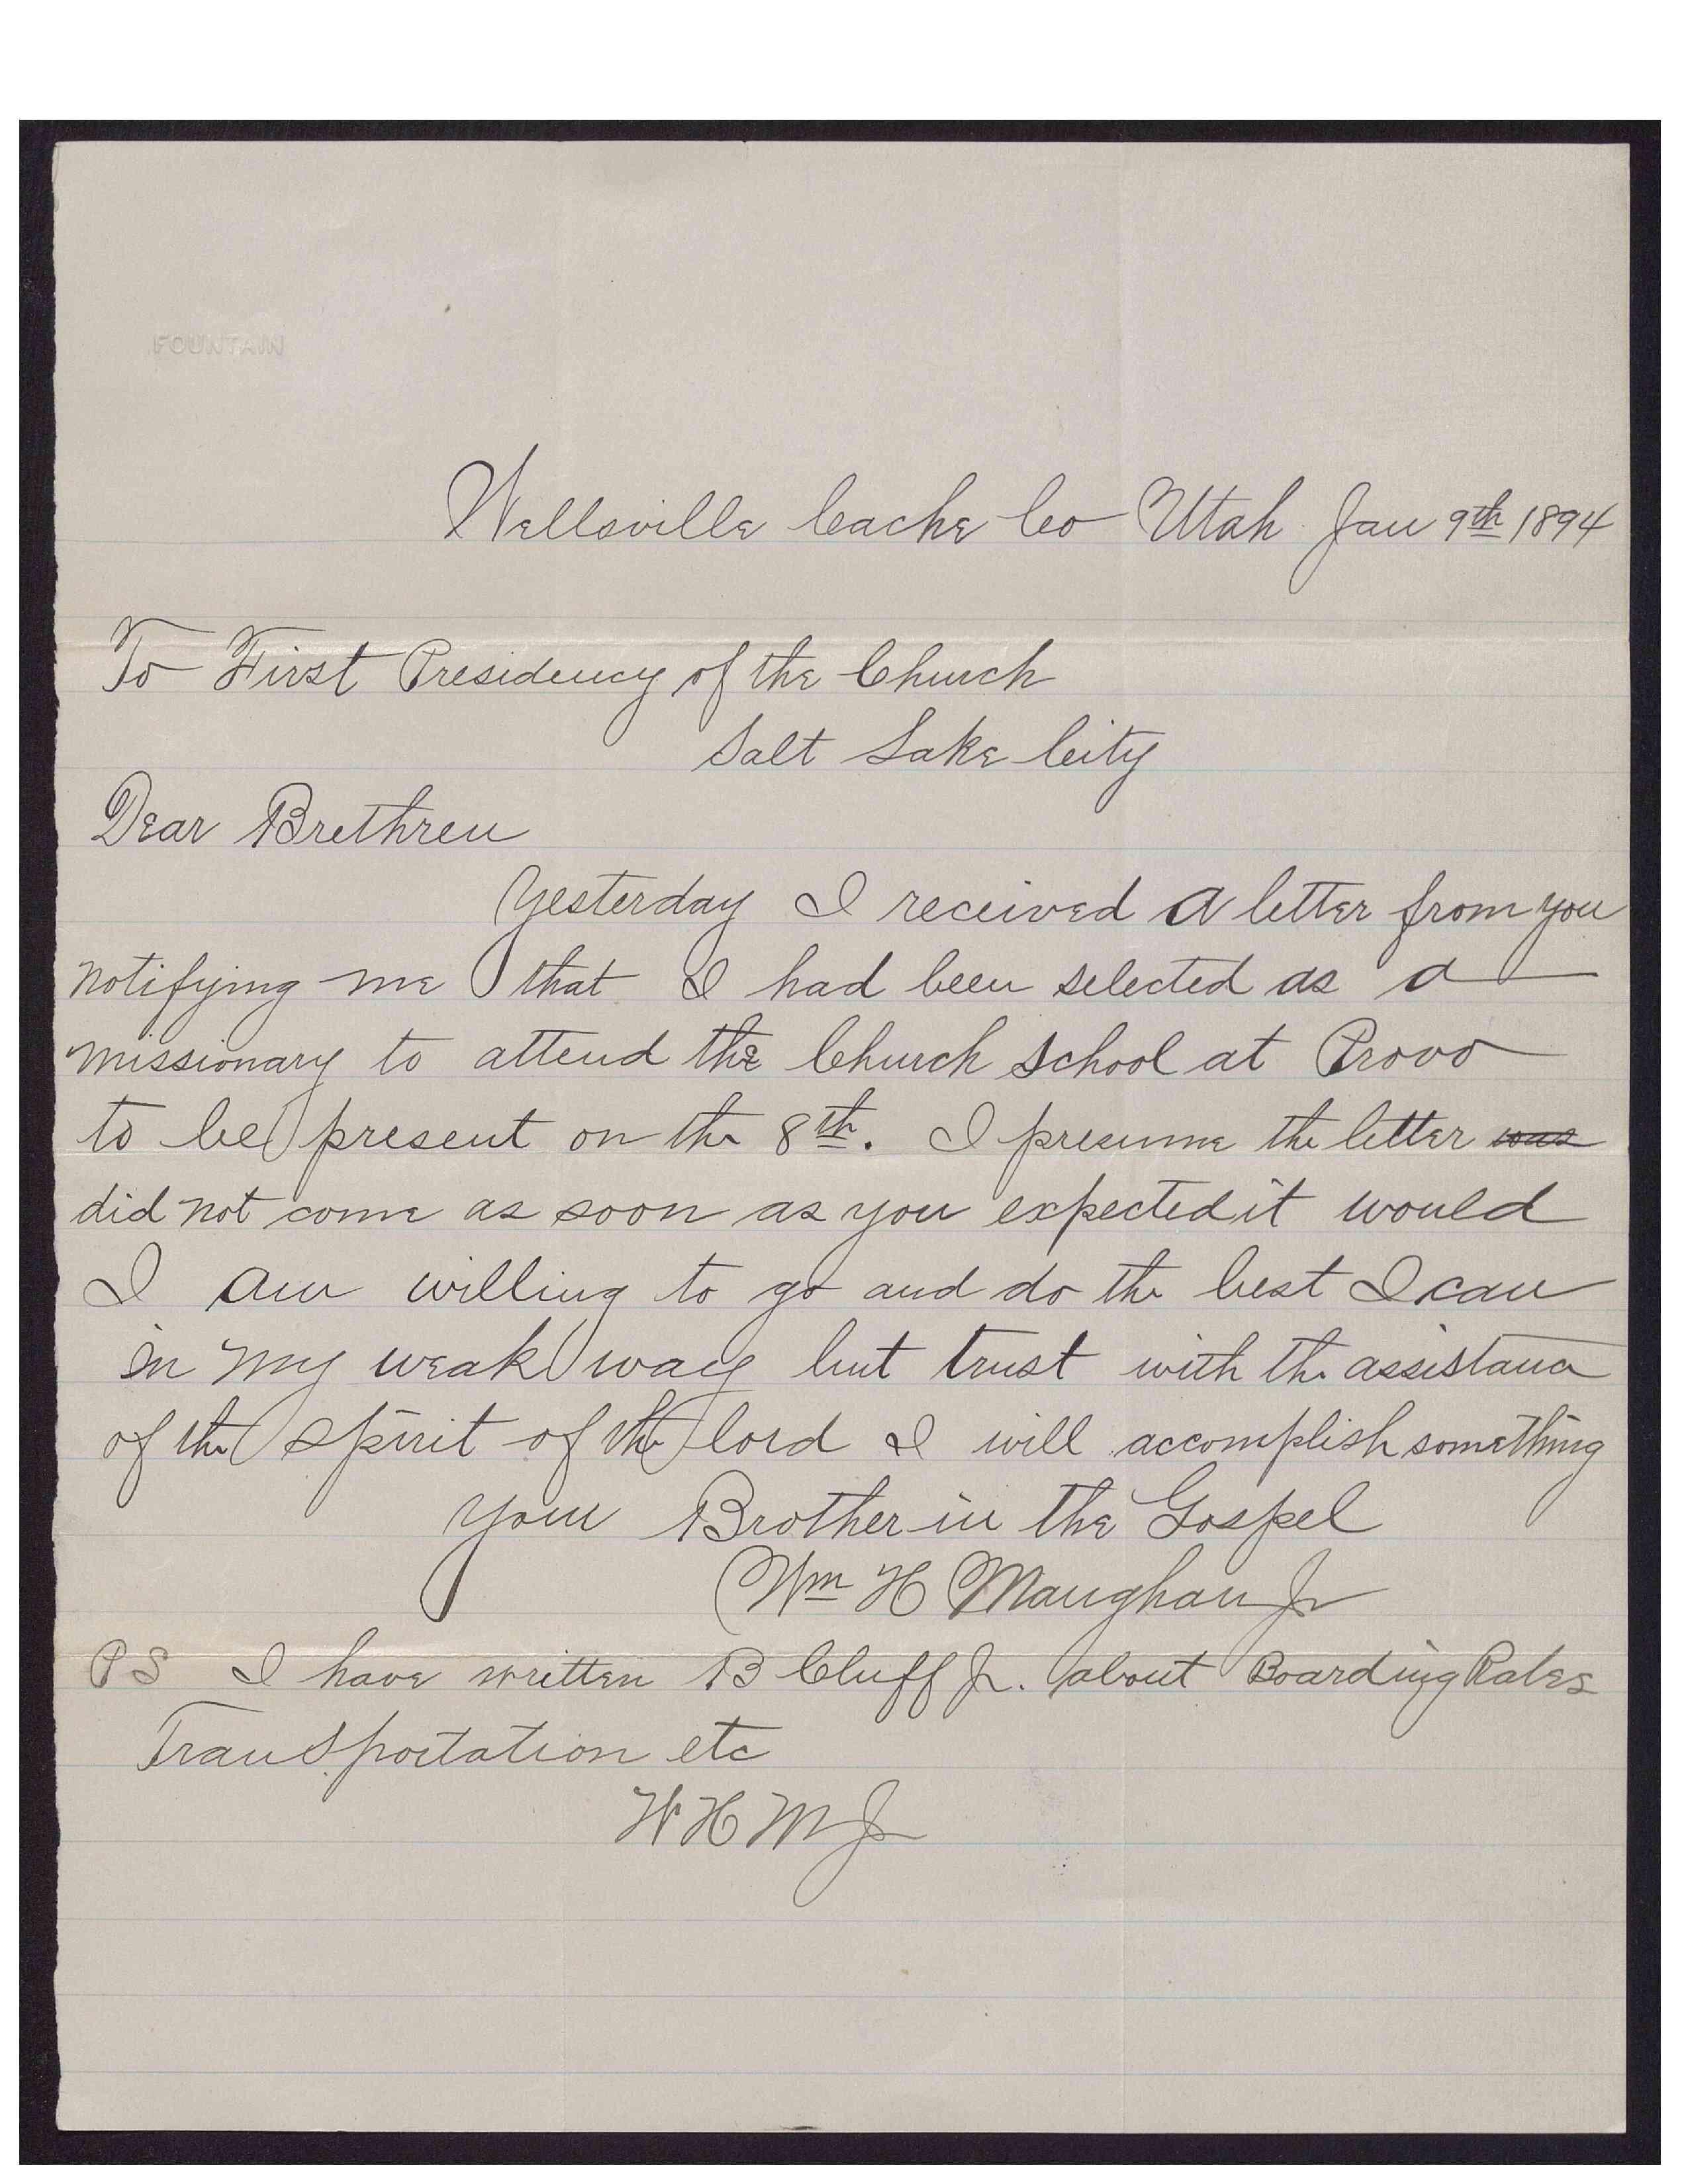 FOUNTAIN
Wellsville Cache Co Utah Jan 9th 1894
To First Presidency of the Church
Salt Lake City
Dear Brethren
Yesterday I received a letter from you
notifying me that I had been selected as a
missionary to attend the Church School at Provo
to be present on the 8th. I presume the letter was
did not come as soon as you expected it would
I am willing to go and do the best I can
in my weak way but trust with the assistance
of the spirit of the lord I will accomplish something
your Brother in the Gospel
Wm H Maughan Jr
PS I have written B Cluff Jr. about Boarding Rates
Transportation etc
W H M Jr